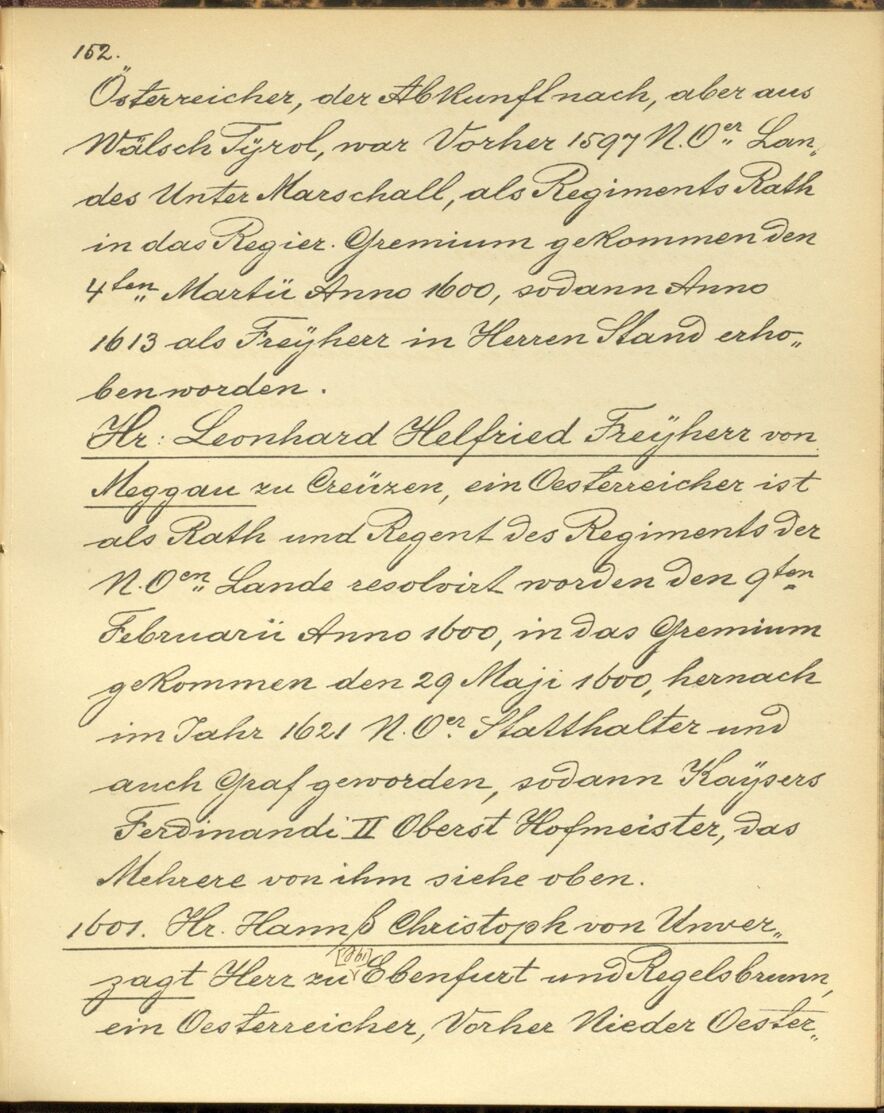 152.
Österreicher, der Abkunft nach, aber aus
Wälsch Tÿrol, war Vorher 1597 N.Oer„ Lan„
des Unter Marschall, als Regiments Rath
in das Regier. Gremium gekommen den
4ten„ Martü Anno 1600, sodann Anno
1613 als Freÿherr in Herren Stand erho„
ben worden.
Hr: Leonhard Helfried Freÿherr von
Meggau zu Creüzen, ein Oesterreicher ist
als Rath und Regent des Regiments der
N.Oen„ Lande resolvirt worden den 9ten
Februarü Anno 1600, in das Gremium
gekommen den 29 Maji 1600, hernach
im Jahr 1621 N.Oer. Statthalter und
auch Graf geworden, sodann Kaÿsers
Ferdinandi II Oberst Hofmeister, das
Mehrere von ihm siehe oben.
1601. Hr. Hannß Christoph von Unver„
zagt Herr zu Ebenfurt und Regelsbrunn,
ein Oesterreicher, Vorher Nieder Oester„